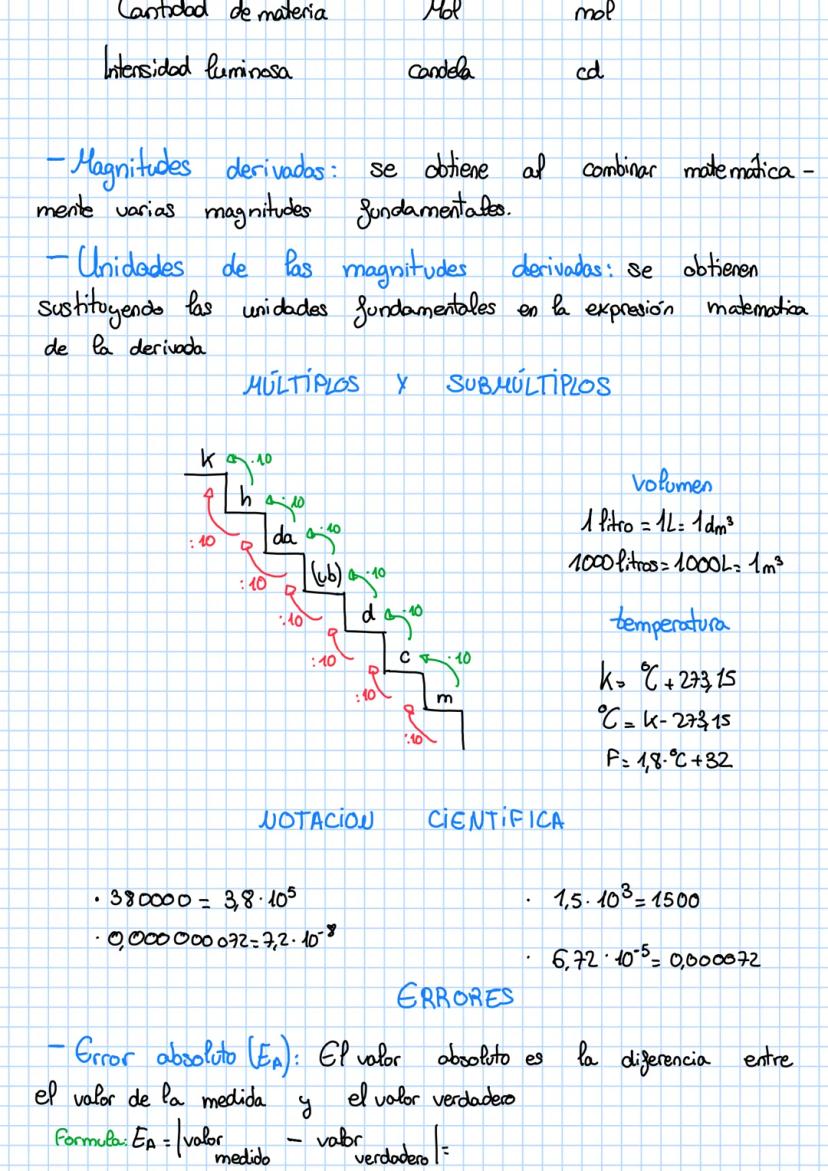 Cantidad de materia Mol mol
Intensidad luminosa Candela cd
- Magnitudes derivadas: se obtiene al combinar matemática-
mente varias magnitudes fundamentales.
- Unidades de las magnitudes derivadas: se obtienen
sustituyendo las unidades fundamentales en la expresión matematica
de la derivada
MÚLTIPLOS Y SUBMÚLTIPLOS
k ·10
h ·10
:10 da ·10
:10 (ub) ·10
:10 d ·10
:10 c ·10
:10 m
:10
volumen
1 litro = 1L = 1dm³
1000 litros = 1000L = 1m³
temperatura
k = ºC + 273,15
ºC = k - 273,15
F = 1,8·ºC + 32
NOTACION CIENTÍFICA
· 380000 = 3,8·10⁵
· 0,000000072 = 7,2·10⁻⁸
· 1,5·10³ = 1500
· 6,72·10⁻⁵ = 0,000072
ERRORES
- Error absoluto (EA): El valor absoluto es la diferencia entre
el valor de la medida y el valor verdadero
Formula: EA = |valor medido - valor verdadero| =